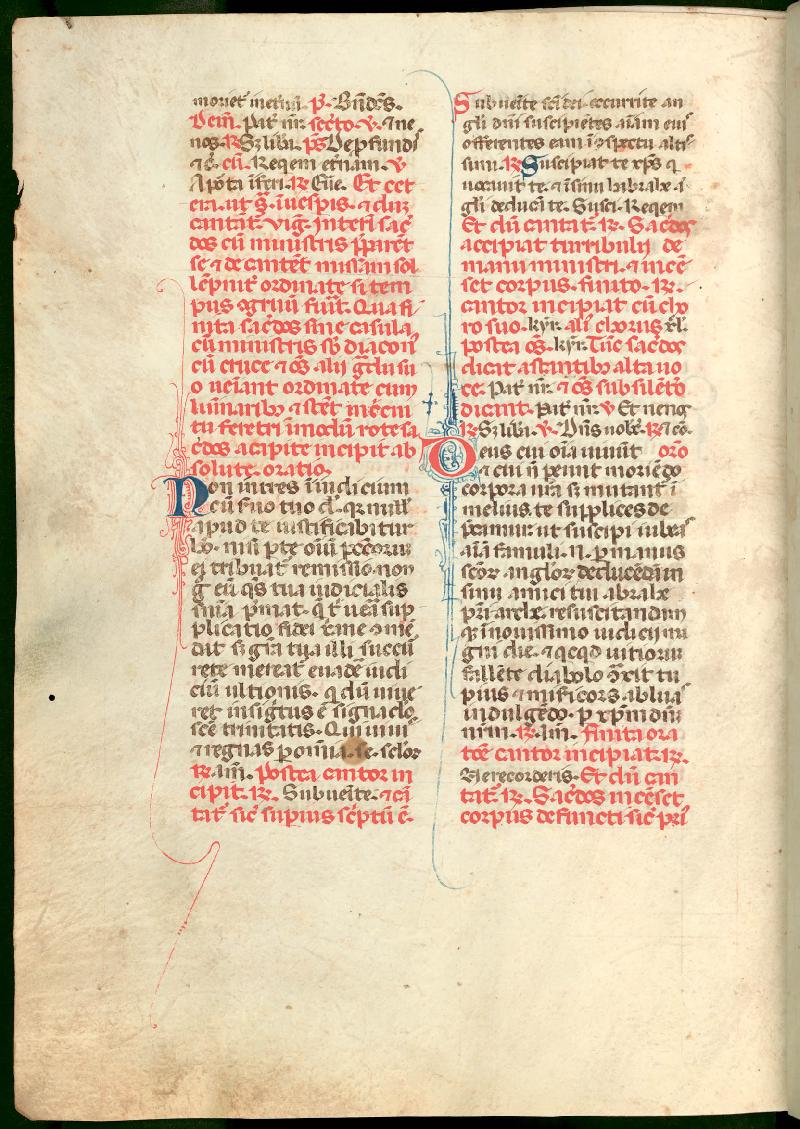 moriet̄ inet̄nū. p̄. Bn̄dc̄s.
Dein̄. Pat̄ nr̄. sec̄to. v. ⁊ ne
nos. R̄. S; liba. p̄s. De p̄fundis
⁊ c̄. cū. Reqem et̄nam. v
A pōta īferi. R̄. Eue. Et cet
era. ut s̄. ī uesp̄is. ⁊ dū;
cantāt̄. vig̃. īnterī sac̄
dos cū ministris p̄paret
se ⁊ decantēt missam sol
lēpnit̄ ordinate si tem
pus ogruū fuīt. Qua fi
nita sac̄dos sine casula
cū ministris s̄b diaconī
cū cruce ⁊ oēs. alij gͣdu su
o ueīant ordinate cum
lūnarib; ⁊ stēt in cc̄ui
tu feretri ī modū rote sa
c̄dos accipite incipit ab
solute. oratio
Non intres ī iudicium
cū s̄uo tuo dn̄e. qr null'
apud te iustificabitur
ho. nisi p̄ te oīū pcc̄orū
ei tribuat̄ remissio. non
g̊ eū q̄s tua iudicialis
sn̄ia p̄mat. q̄ t̄ uēa sup
plicatio fidei xp̄iane ōmē
dat. s; gr̄a tua illi succū
rēte mereat̄ euadē iudi
ciū ultionis. q̄ dū uiue
ret insigitus ē signaclo
scē trinitatis. Qui uiuis
⁊ regnas p oīnia. se. sc̄lor
R̄. am̄. Postea cantor in
cipit. R̄. Subueīte. ⁊ cā
tat̄ sic̄ sup̄ius sc̄ptū ē.
Subueīte sc̄i dei. occurrite an
gli dn̄i suscipiētes aīam eius
offerentes eam ī ospectu altis
simi. R̄. Suscipiat te xp̄s q
uocauit te. ⁊ ī sinū habrahe ā
gli deducāt te. Susci. Reqem
Et dū cantat̄. R̄. Sac̄dos
accipiat turribulū de
manu ministri. ⁊ incē
set corpus. finito. R̄.
cantor incipiat cū cho
ro suo. kyr̄. ali' chorus xr̄l.
postea oēs. kyr̄. Tūc sac̄dos
dicat astantib; alta uo
ce. Pat̄ nr̄. ⁊ oēs sub silētō
dicant. Pat̄ nr̄. v Et neng
R̄. S; liba. v. Dn̄s nob̄c. R̄. ⁊ cō.
Deus cui oīa uiuūt orō
⁊ cui n̄ peunt moriēdo
corpora nr̄a s; mutant̄ ī
melius. te supplices de
p̄camur ut suscipi iubeas
aīam famuli. N. p manus
scōr. anglor̄ deducēdā in
sinū amici tui abrahe
pr̄iarche. resuscitandam
qr ī nouissimo iudicij ma
gni die. ⁊ qcqd uitiorum
fallēte diabolo ōxit tu
pius ⁊ misicors ablua
indulgēdo. p xp̄m dn̄m
nr̄m. R̄. am̄. Finita ora
tōe cantor incipiat. R̄.
Ne recorderis. Et dū can
tat̄. R̄. Sac̄dos incēset
corpus defuncti sic̄ pri